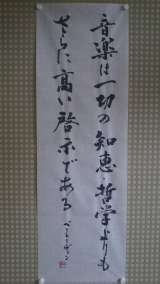 音楽は一切の知恵・哲学よりも
さらに高い啓示である
ベートーヴェン